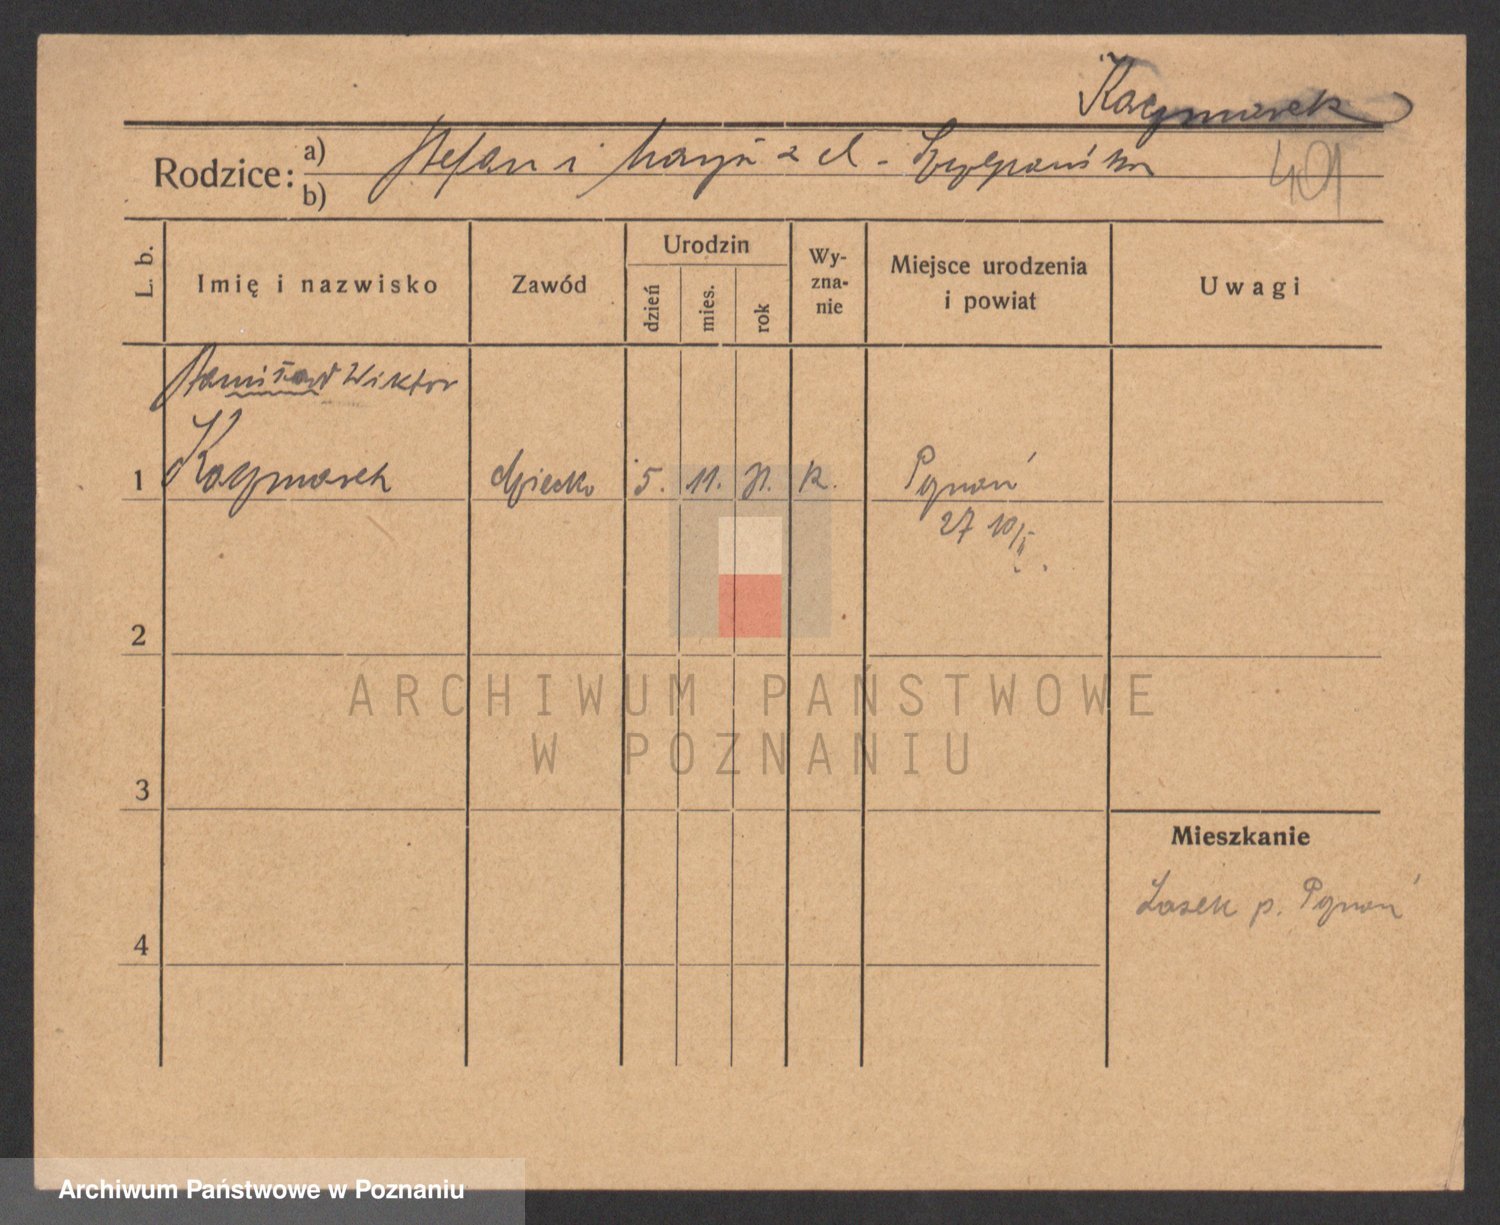 Kaczmarek
401
Rodzice: a) Stefan i Marja z d. Szczepańska
b)
L. b. Imię i nazwisko Zawód Urodzin dzień mies. rok Wy-zna-nie Miejsce urodzenia i powiat Uwagi
Stanisław Wiktor
1 Kaczmarek dziecko 5. 11. 31. k. Poznań
27 10/II
2
ARCHIWUM PAŃSTWOWE
W POZNANIU
3
Mieszkanie
Lasek p. Poznań
4
Archiwum Państwowe w Poznaniu